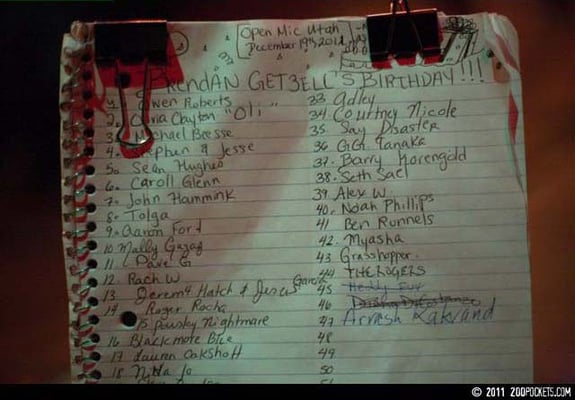 [Open Mic Utah
December 19th 201
BrendAN GETZELL'S BIRTHDAY!!!
1. Owen Roberts
2. Olivia Clayton "Oli"
3. Michael Beesse
4. Stephen & Jesse
5. Sean Hughes
6. Caroll Glenn
7. John Hammink
8. Tolga
9. Aaron Ford
10 Mally
11 Dave G
12 Rach W
13 Jeremy Hatch & Jesus Garcia
14 Roger Rocha
15 Pinsky Nightmare
16 Blackmote Blue
17 Lauren Oakshott
18 Nikka Jo
33 Adley
34 Courtney Nicole
35 Say Disaster
36 GiGi Tanaka
37. Barry Korengold
38. Seth Sael
39 Alex W.
40. Noah Phillips
41 Ben Runnels
42. Myasha
43 Grasshopper.
44 THE ROGERS
45
46
47 Arvesh Kakvand
48
49
50
51
© 2011 200POCKETS.COM